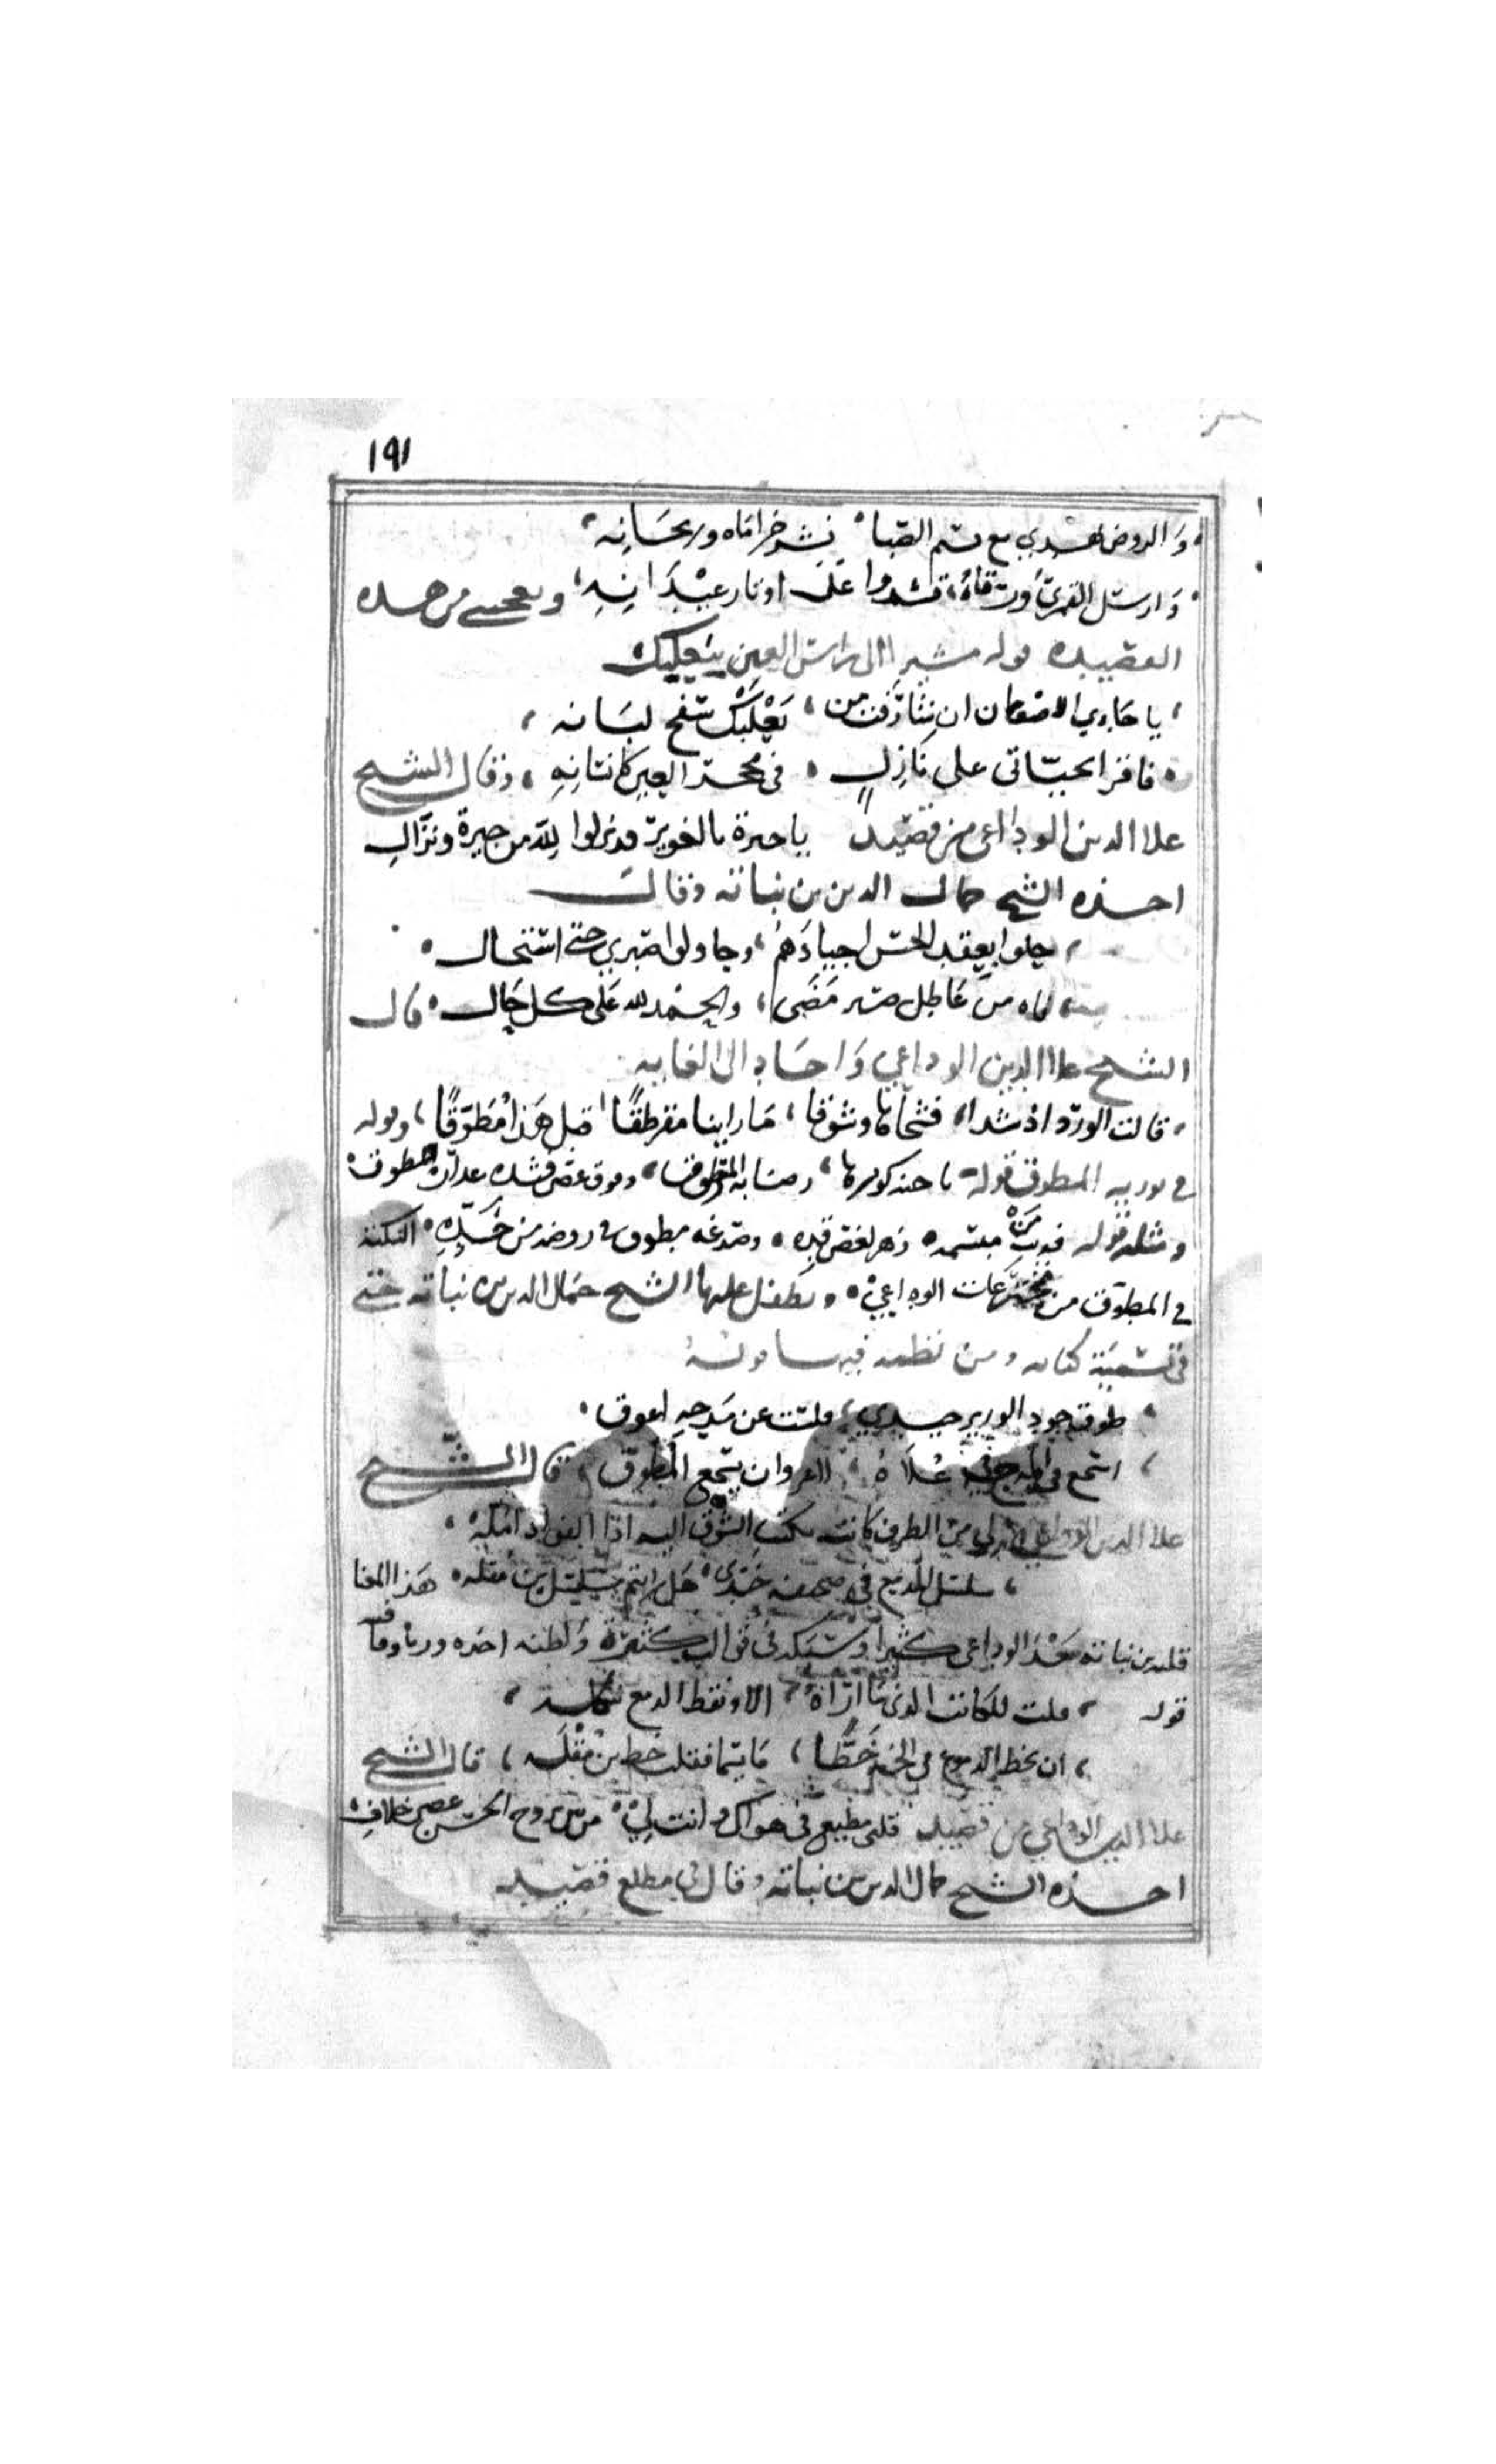 ١٩١
والروض يهدي مع نسيم الصبا نشر خزاماه وريحانه
وارسل القمري ورقاه تشدوا على اوتار عيدانه ويعجبني من هذه
القصيده قوله مشيرا الى راس العين ببعلبك
يا حادي الاضعان ان شارفت من بعلبك سفح لبنانه
فاقرا تحياتي على نازل في محجر العين كانسانه وقال الشيخ
علا الدين الوداعي من قصيد يا جيرة بالغوير قد نزلوا لله من جيرة ونزال
اخذه الشيخ جمال الدين بن نباته وقال
حلوا بعقد الحسن اجيادهم وحاولوا صبري حتى استحال
اه من عاطل صبر مضى والحمد لله على كل حال قال
الشيخ علا الدين الوداعي واجاد الى الغايه
قالت الورد اذ شدا فشجانا وشوقا ما راينا مقرطقا قبل هذا مطوقا وقوله
في توريه المطوق قوله يا حنه رضابه وفوق غصن قده عداره المطوق
ومثله قوله فديت من مبسمه زهر لغصن قده وصدغه مطوق في روضه من خده النكتة
في المطوق من مخترعات الوداعي وتطفل عليها الشيخ جمال الدين بن نباته حتى
في تسمية كتابه ومن نظمه فيه
طوق جود الوزير جيدي فلست عن مدحه اعوق
اسجع في علاه لا غرو ان يسجع المطوق قال الشيخ
علا الدين الوداعي من الطرف كاتب يكتب الشوق اليه اذا الفواد امله
سلسل الدمع في صحيفة خدي هل رايتم مسلسل بن مقله هذا المعنا
قلد بن نباته بعد الوداعي كثيرا وسبكه في قوالب كثيرة والطنه اخذه وزنا وقافية
قوله قلت للكاتب الذي ما اراه الا ونقط الدمع شكله
ان تخط الدموع في الخد خطا ما يسما فقلت خط بن مقله قال الشيخ
علا الدين الوداعي من قصيد قلبي مطيع في هواك وانت لي من بين روح الحسن غصن خلاف
اخذه الشيخ جمال الدين بن نباته وقال في مطلع قصيد